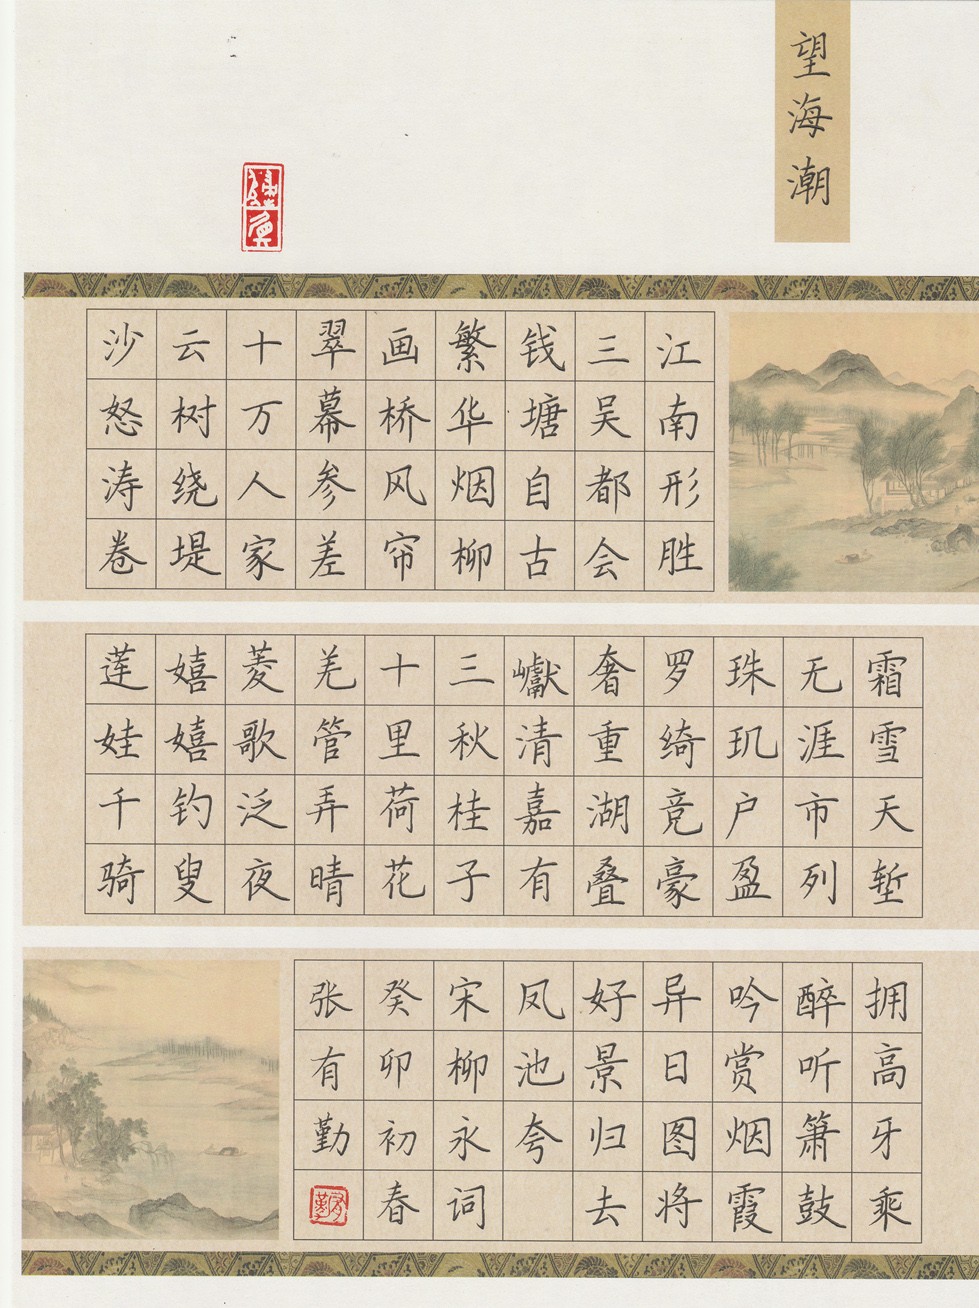 望海潮
江南形胜
三吴都会
钱塘自古
繁华烟柳
画桥风帘
翠幕参差
十万人家
云树绕堤
沙怒涛卷
霜雪天堑
无涯市列
珠玑户盈
罗绮竞豪
奢重湖叠
巘清嘉有
三秋桂子
十里荷花
羌管弄晴
菱歌泛夜
嬉嬉钓叟
莲娃千骑
拥高牙乘
醉听箫鼓
吟赏烟霞
异日图将
好景归去
凤池夸
宋柳永词
癸卯初春
张有勤